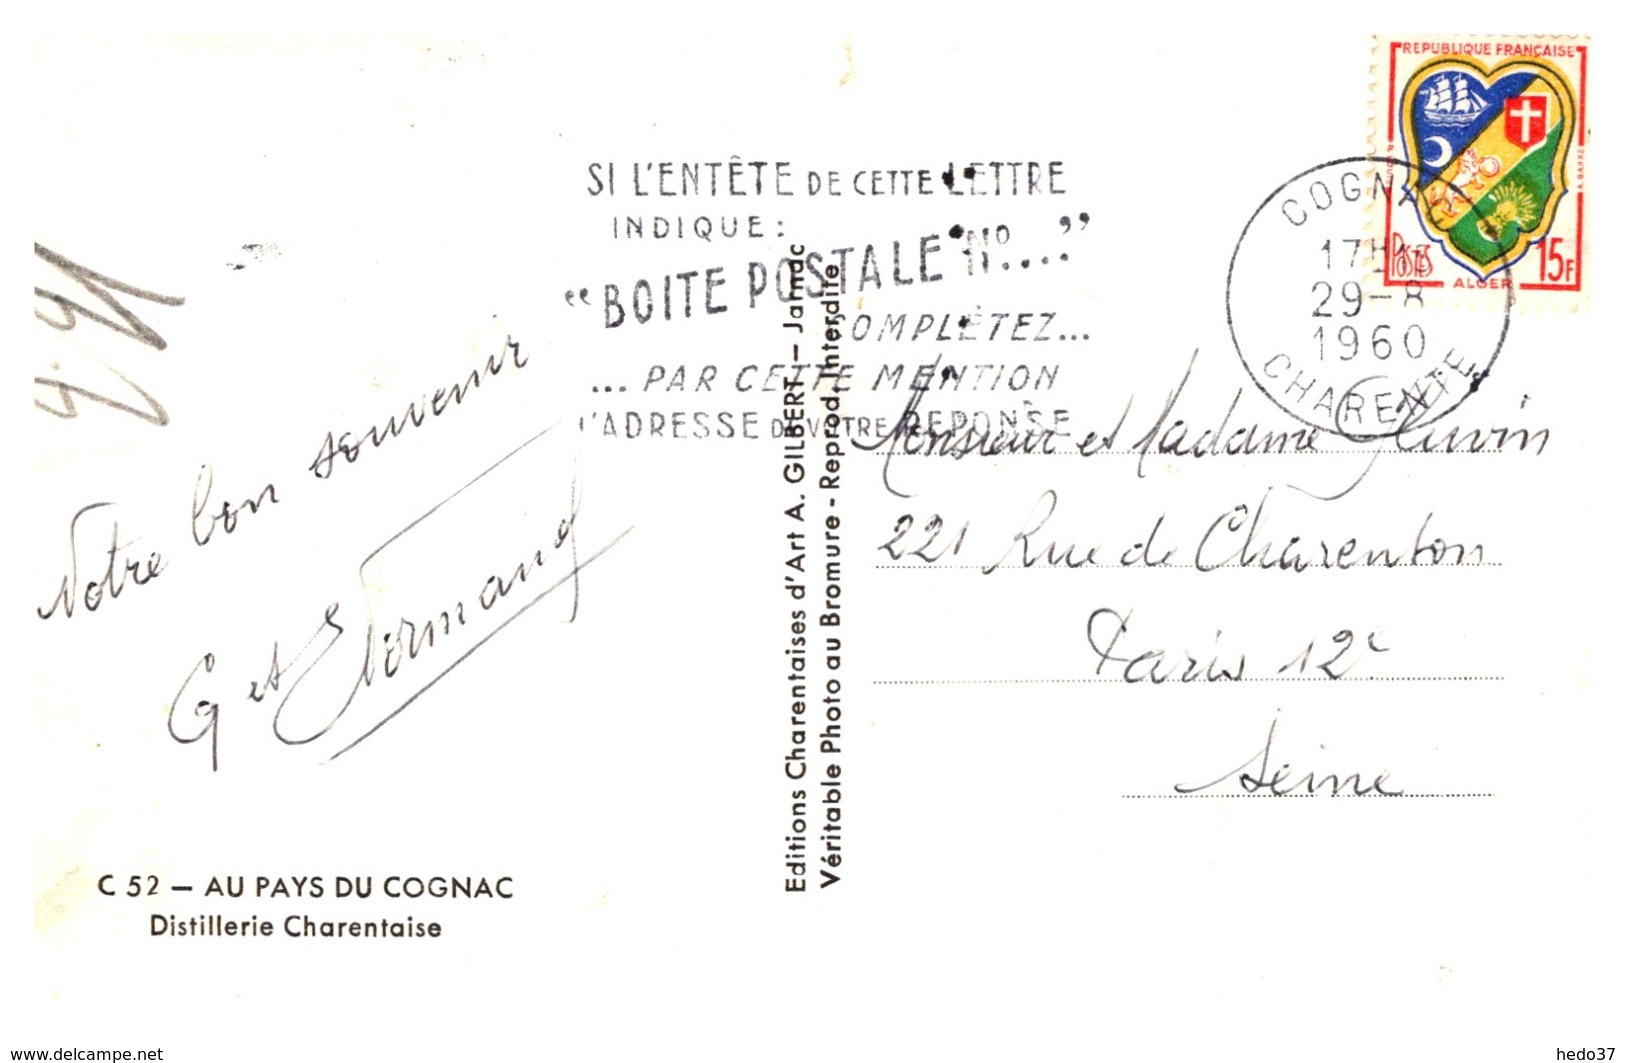 REPUBLIQUE FRANÇAISE
POSTES
15F
ALGER
COGNAC
29-8
1960
CHARENTE
SI L'ENTÊTE DE CETTE LETTRE
INDIQUE :
"BOITE POSTALE No...."
COMPLÉTEZ...
...PAR CETTE MENTION
L'ADRESSE DE VOTRE REPONSE
Notre bon souvenir
G et Normand
Monsieur et Madame
221 Rue de Charenton
Paris 12e
Seine
Editions Charentaises d'Art A. GILBERT — Jarnac
Véritable Photo au Bromure - Reprod. Interdite
C 52 — AU PAYS DU COGNAC
Distillerie Charentaise
www.delcampe.net
hedo37